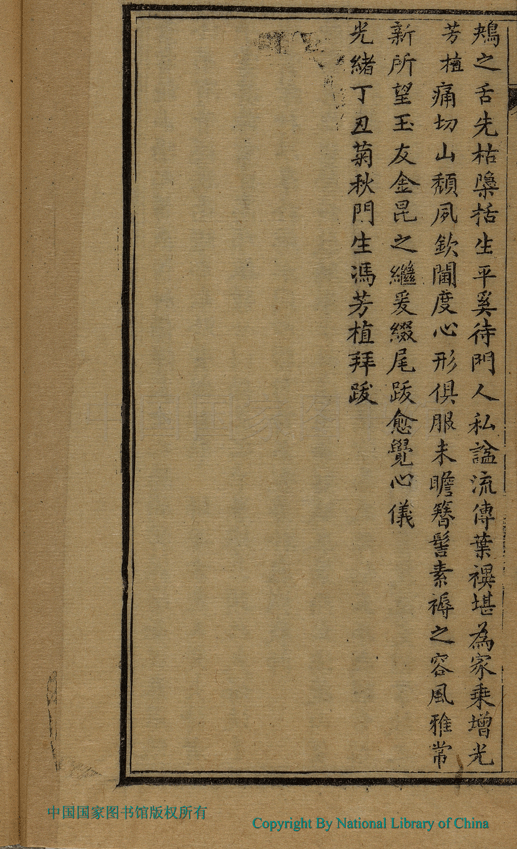 鴂之舌先枯檃括生平奚待門人私諡流傳葉禩堪為家乘增光
芳植痛切山頹夙欽閫度心形俱服未瞻簪髻素褥之容風雅常
新所望玉友金昆之繼爰綴尾跋愈覺心儀
光緒丁丑菊秋門生馮芳植拜跋
中国国家图书馆版权所有
Copyright By National Library of China